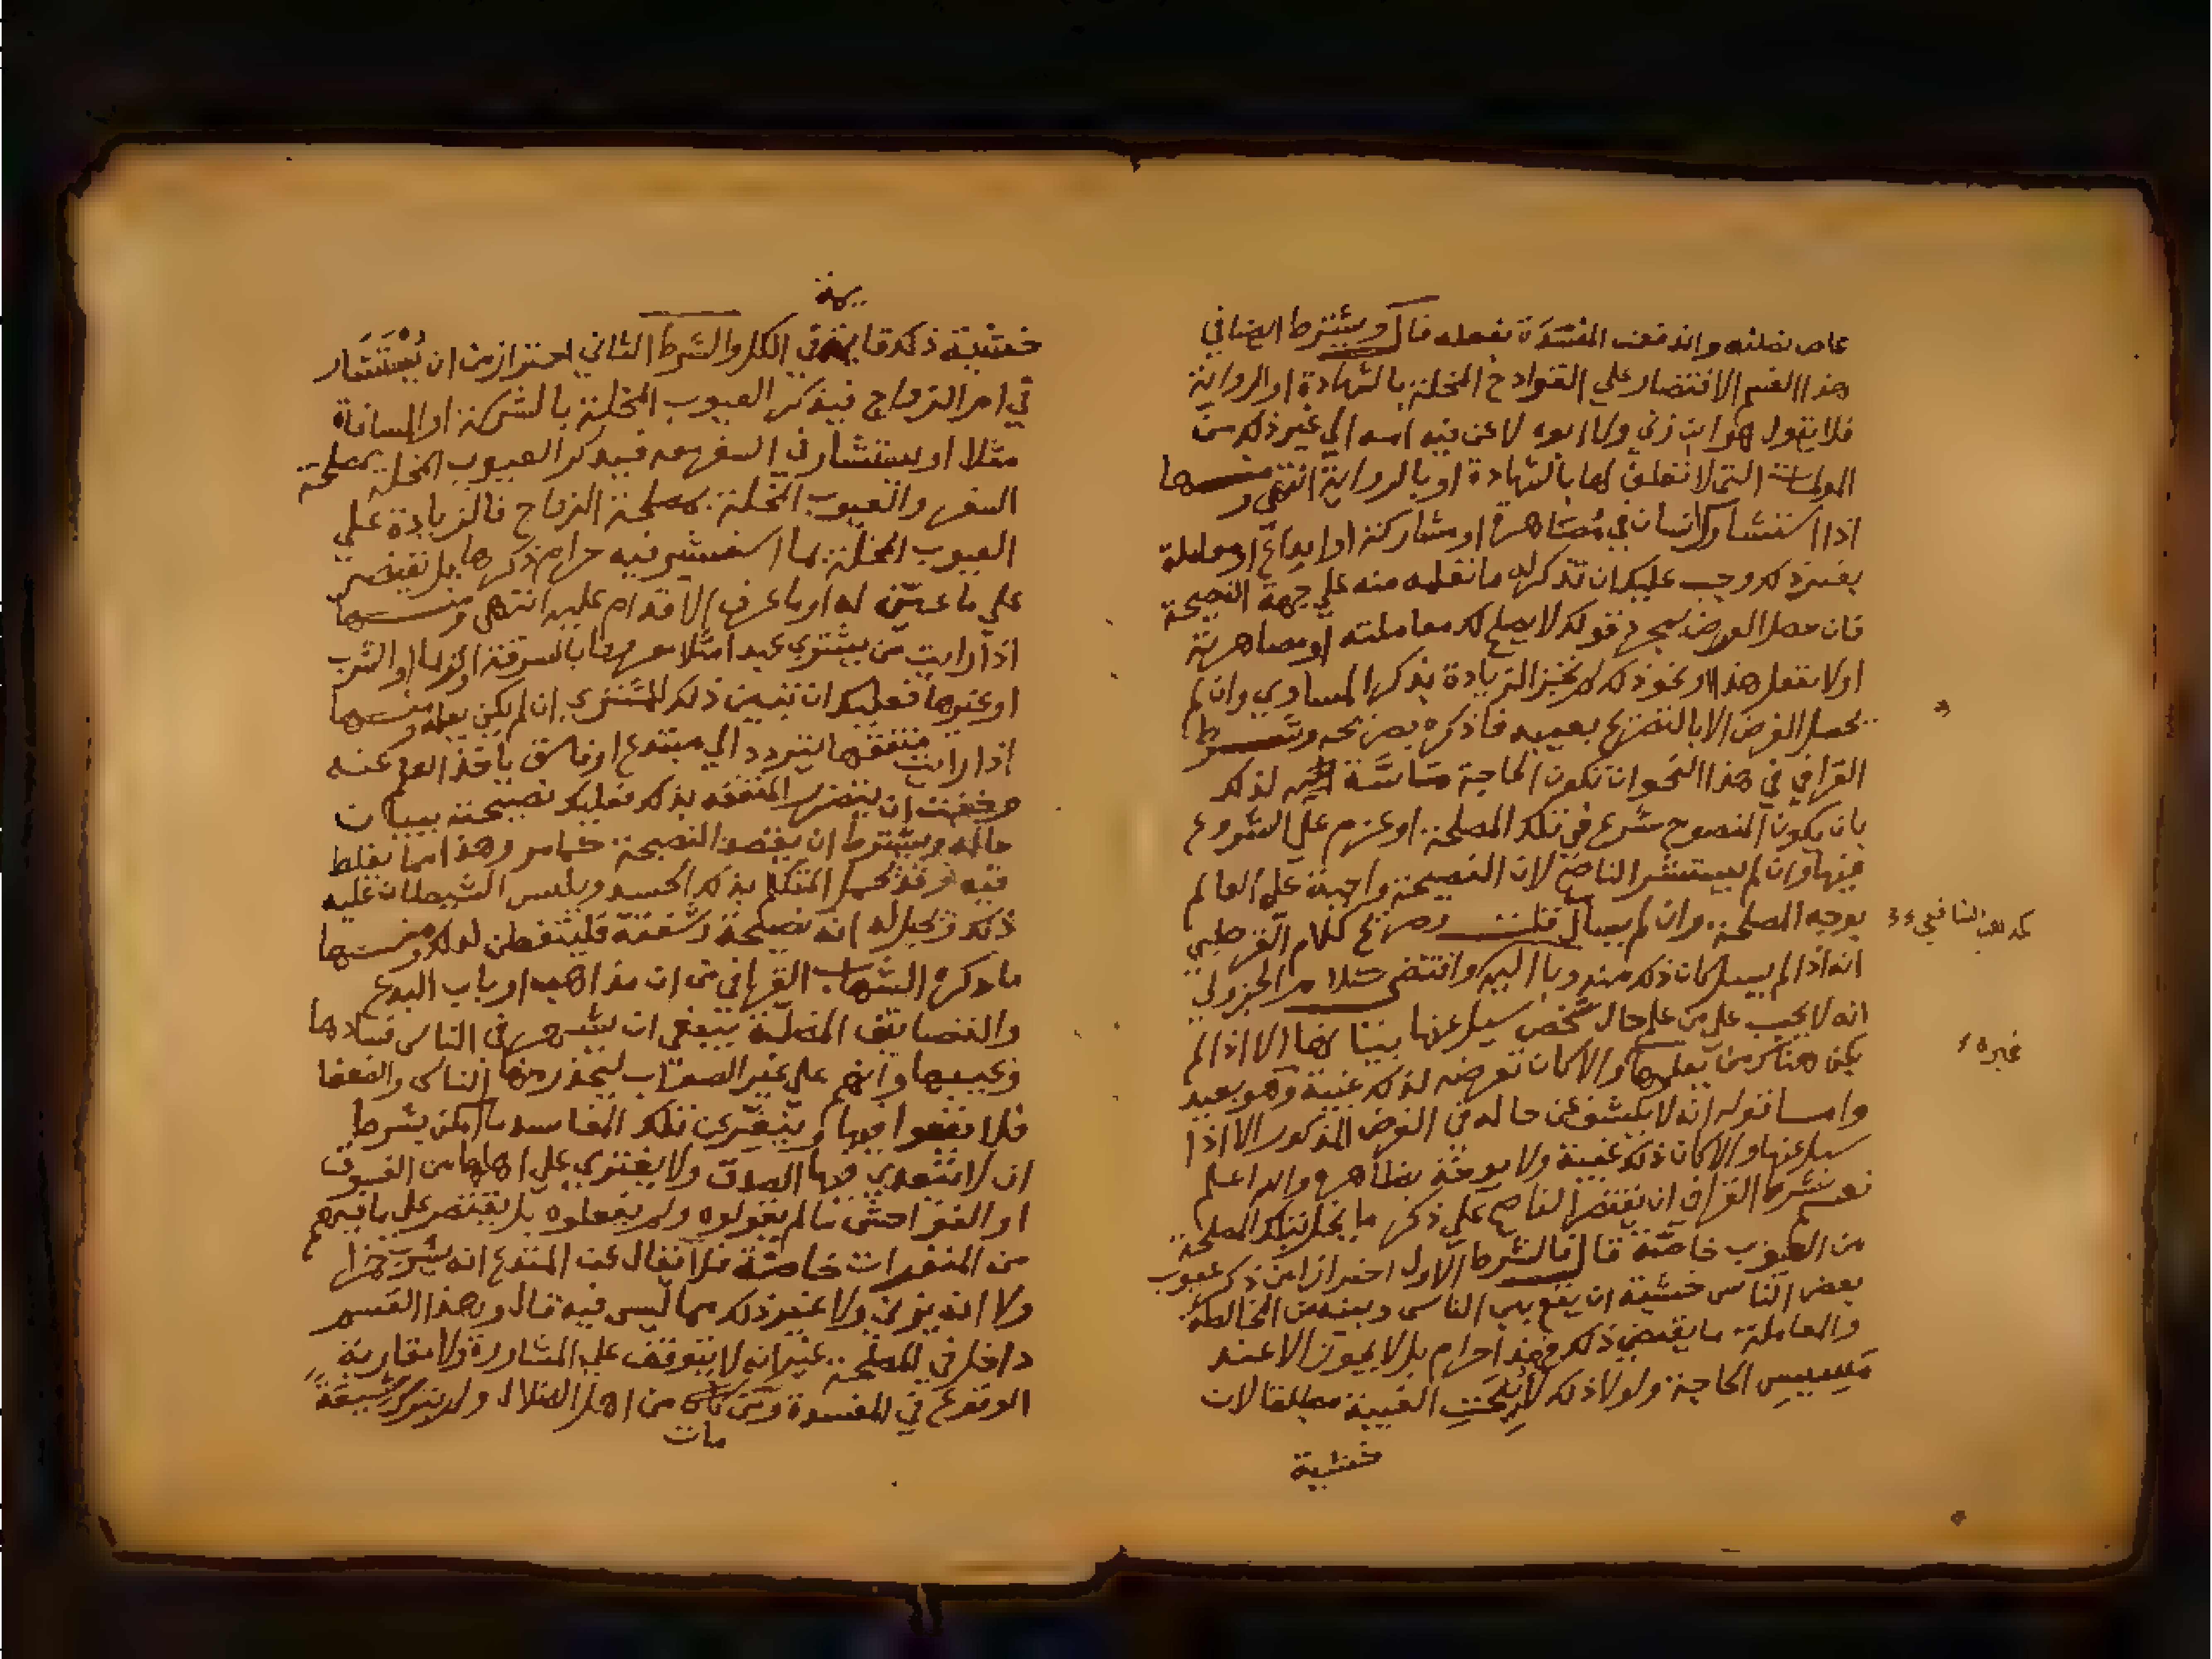 عاص بفعلته واندفعت المفسدة بفعله قال ويشترط ايضا في
هذا القسم الاقتصار علي القوادح المخلة بالشهادة او الرواية
فلا يقول هو ابن زني ولا ابوه لاعن فيه امه الي غير ذلك من
المولمات التي لا تعلق لها بالشهادة او بالرواية انتهي ومنها
اذا استشارك انسان في مصاهرة او مشاركة او ايداع او معاملة
بغير ذلك وجب عليك ان تذكر له ما تعلمه منه علي جهة النصيحة
فان حصل الغرض بمجرد قولك لا يصلح لك معاملته او مصاهرته
او لا تفعل هذا او نحو ذلك لم تجز الزيادة بذكر المساوي وان لم
يحصل الغرض الا بالتصريح بعيبه فاذكره بصريحه وشرط
القرافي في هذا النحو ان تكون الحاجة ماسة لذلك
بان يكون المنصوح شرع في تلك المصلحة او عزم علي الشروع
فيها وان لم يستشر الناصح لان النصيحة واجبة علي العالم
بوجه المصلحة وان لم يسال قلت وصريح كلام القرطبي
انه اذا لم يسل كان ذلك مندوبا اليه واقتضي كلام الجزولي
انه لا يجب علي من علم حال شخص سيل عنها بيانها الا اذا لم
يكن هناك من يعلمها والا كان تعرضه لذلك غيبة وهو بعيد
واما قوله انه لا يكشف عن حاله في الغرض المذكور الا اذا
سيل عنها والا كان ذلك غيبة ولا يوخذ بظاهره والله اعلم
نعم شرط القرافي ان يقتصر الناصح علي ذكر ما يخل بتلك المصلحة
من العيوب خاصة قال فالشرط الاول احترازا من ذكر عيوب
بعض الناس خشية ان يقع بين الناس وبينه من المخالطة
والمعاملة ما يقتضي ذلك فهذا حرام بل لا يجوز الا عند
مسيس الحاجة ولولا ذلك لأبيحت الغيبة مطلقا لان
خشية
غيره
خشية ذلك قايمة في الكل والشرط الثاني احتراز من ان يُستَشار
في امر الزواج فيذكر العيوب المخلة بالشركة او المساقاة
مثلا او يستشار في السفر معه فيذكر العيوب المخلة بمصلحة
السفر والعيوب المخلة بمصلحة الزواج فالزيادة علي
العيوب المخلة بما استشير فيه حرام ذكرها بل تقتصر
علي ما عين له او ما عرف الاقدام عليه انتهي ومنها
اذا رايت من يشتري عبدا مثلا معروفا بالسرقة او الزنا او الشرب
او غيرها فعليك ان تبين ذلك للمشتري ان لم يكن يعلمه ومنها
اذا رايت متفقها يتردد الي مبتدع او فاسق ياخذ العلم عنه
وخفت ان يتضرر المتفقه بذلك فعليك نصيحته ببيان
حاله ويشترط ان يقصد النصيحة كما مر وهذا مما يغلط
فيه وقد يحمل المتكلم بذلك الحسد ويلبس الشيطان عليه
ذلك ويخيل له انه نصيحة وشفقة فليتفطن لذلك ومنها
ما ذكره الشهاب القرافي من ان مذاهب ارباب البدع
والتصانيف المضلة ينبغي ان يشهر في الناس فسادها
وعيبها وانهم علي غير الصواب ليحذر منها الناس والضعفا
فلا يقعوا فيها وينفر عن تلك المفاسد ما امكن بشرط
ان لا يتعدي فيها الصدق ولا يفتري علي اهلها من الفسوق
او الفواحش ما لم يقولوه ولم يفعلوه بل يقتصر علي ما فيهم
من المنفرات خاصة فلا يقال عن المبتدع انه يشرب خمرا
ولا انه يزني ولا غير ذلك مما ليس فيه قال وهذا القسم
داخل في المصلحة غير انه لا يتوقف علي المشاورة ولا مقاربة
الوقوع في المفسدة ومن كان من اهل الضلال ولم يترك شيعة
مات